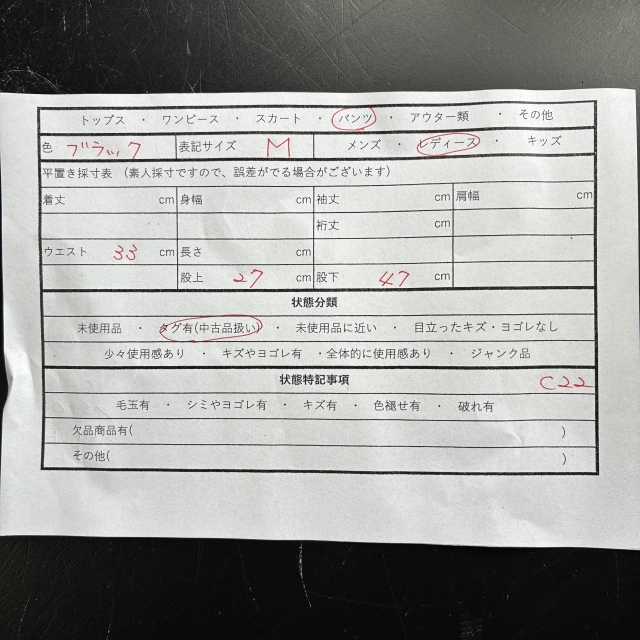 トップス ・ ワンピース ・ スカート ・ パンツ ・ アウター類 ・ その他
色 ブラック 表記サイズ M メンズ ・ レディース ・ キッズ
平置き採寸表 (素人採寸ですので、誤差がでる場合がございます)
着丈 cm 身幅 cm 袖丈 cm 肩幅 cm
裄丈 cm
ウエスト 33 cm 長さ cm
股上 27 cm 股下 47 cm
状態分類
未使用品 ・ タグ有(中古品扱い) ・ 未使用品に近い ・ 目立ったキズ・ヨゴレなし
少々使用感あり ・ キズやヨゴレ有 ・全体的に使用感あり ・ ジャンク品
状態特記事項 C22
毛玉有 ・ シミやヨゴレ有 ・ キズ有 ・ 色褪せ有 ・ 破れ有
欠品商品有( )
その他( )